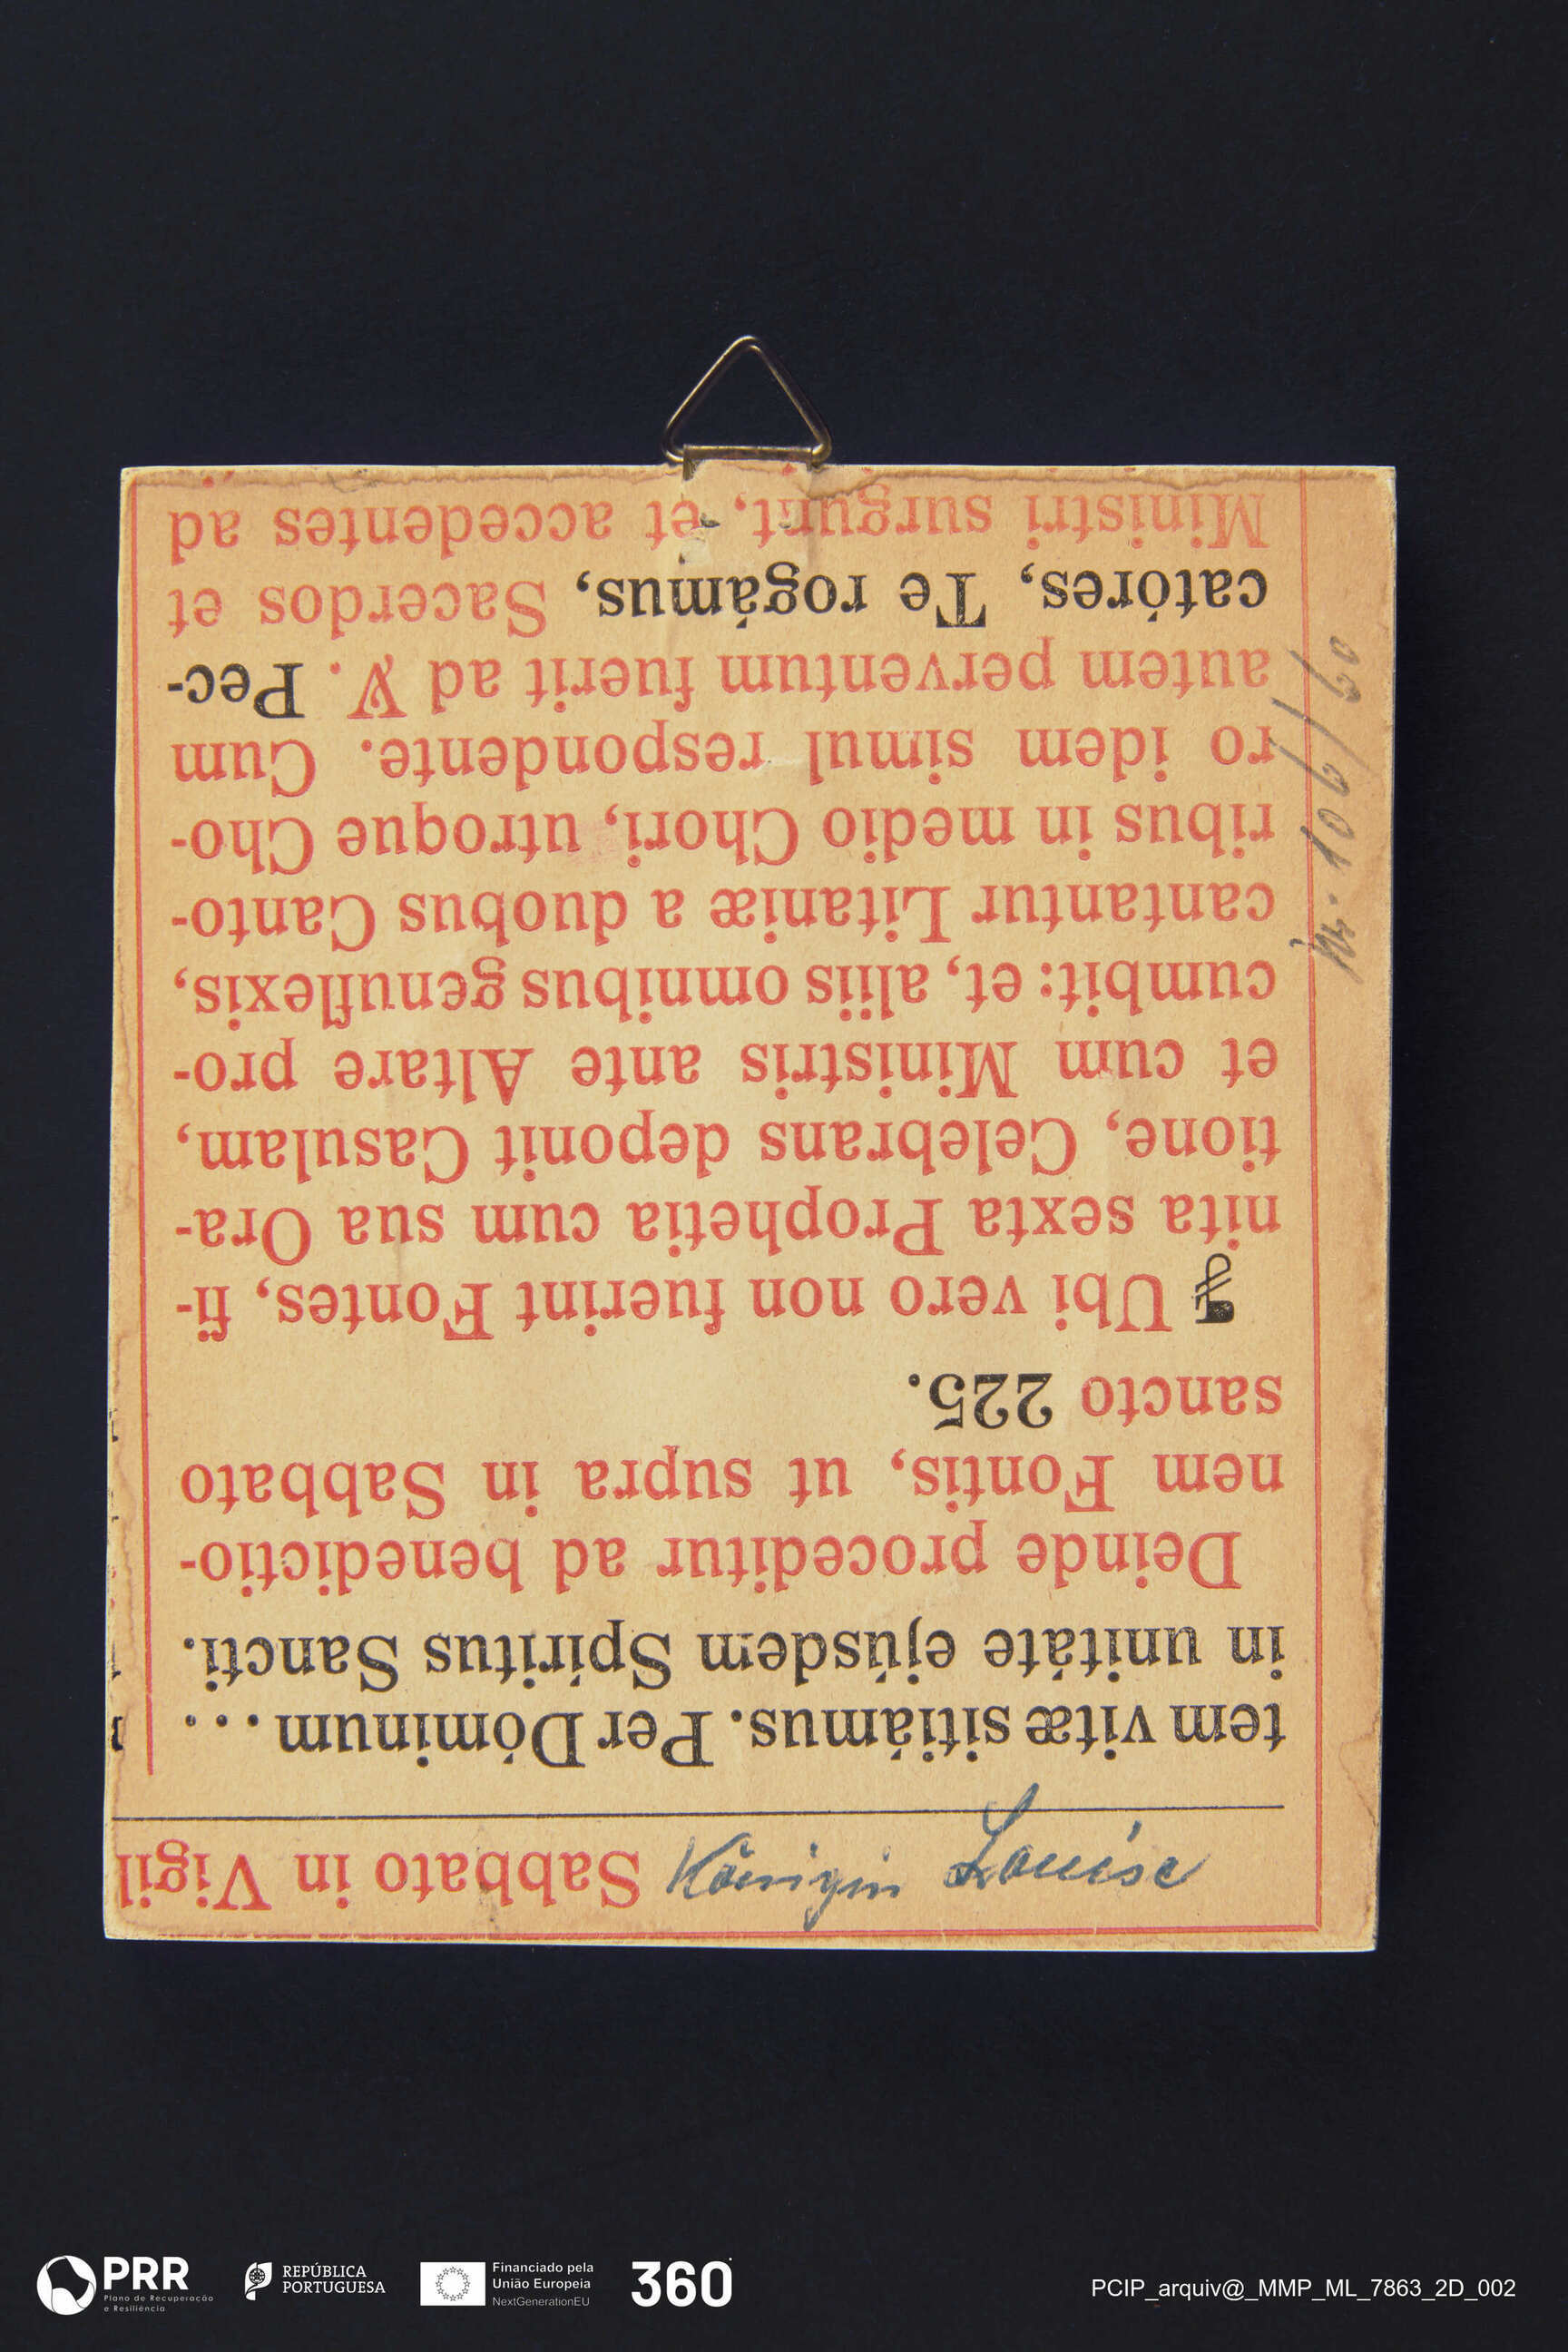 Sabbato in Vigil
tem vitæ sitiámus. Per Dóminum...
in unitáte ejúsdem Spíritus Sancti.
Deinde proceditur ad benedictio-
nem Fontis, ut supra in Sabbato
sancto 225.
Ubi vero non fuerint Fontes, fi-
nita sexta Prophetia cum sua Ora-
tione, Celebrans deponit Casulam,
et cum Ministris ante Altare pro-
cumbit: et, aliis omnibus genuflexis,
cantantur Litaniæ a duobus Canto-
ribus in medio Chori, utroque Cho-
ro idem simul respondente. Cum
autem perventum fuerit ad ℣. Pec-
catóres, Te rogámus, Sacerdos et
Ministri surgunt, et accedentes ad
Königin Louise
PRR
Plano de Recuperação
e Resiliência
REPÚBLICA
PORTUGUESA
Financiado pela
União Europeia
NextGenerationEU
360
PCIP_arquiv@_MMP_ML_7863_2D_002